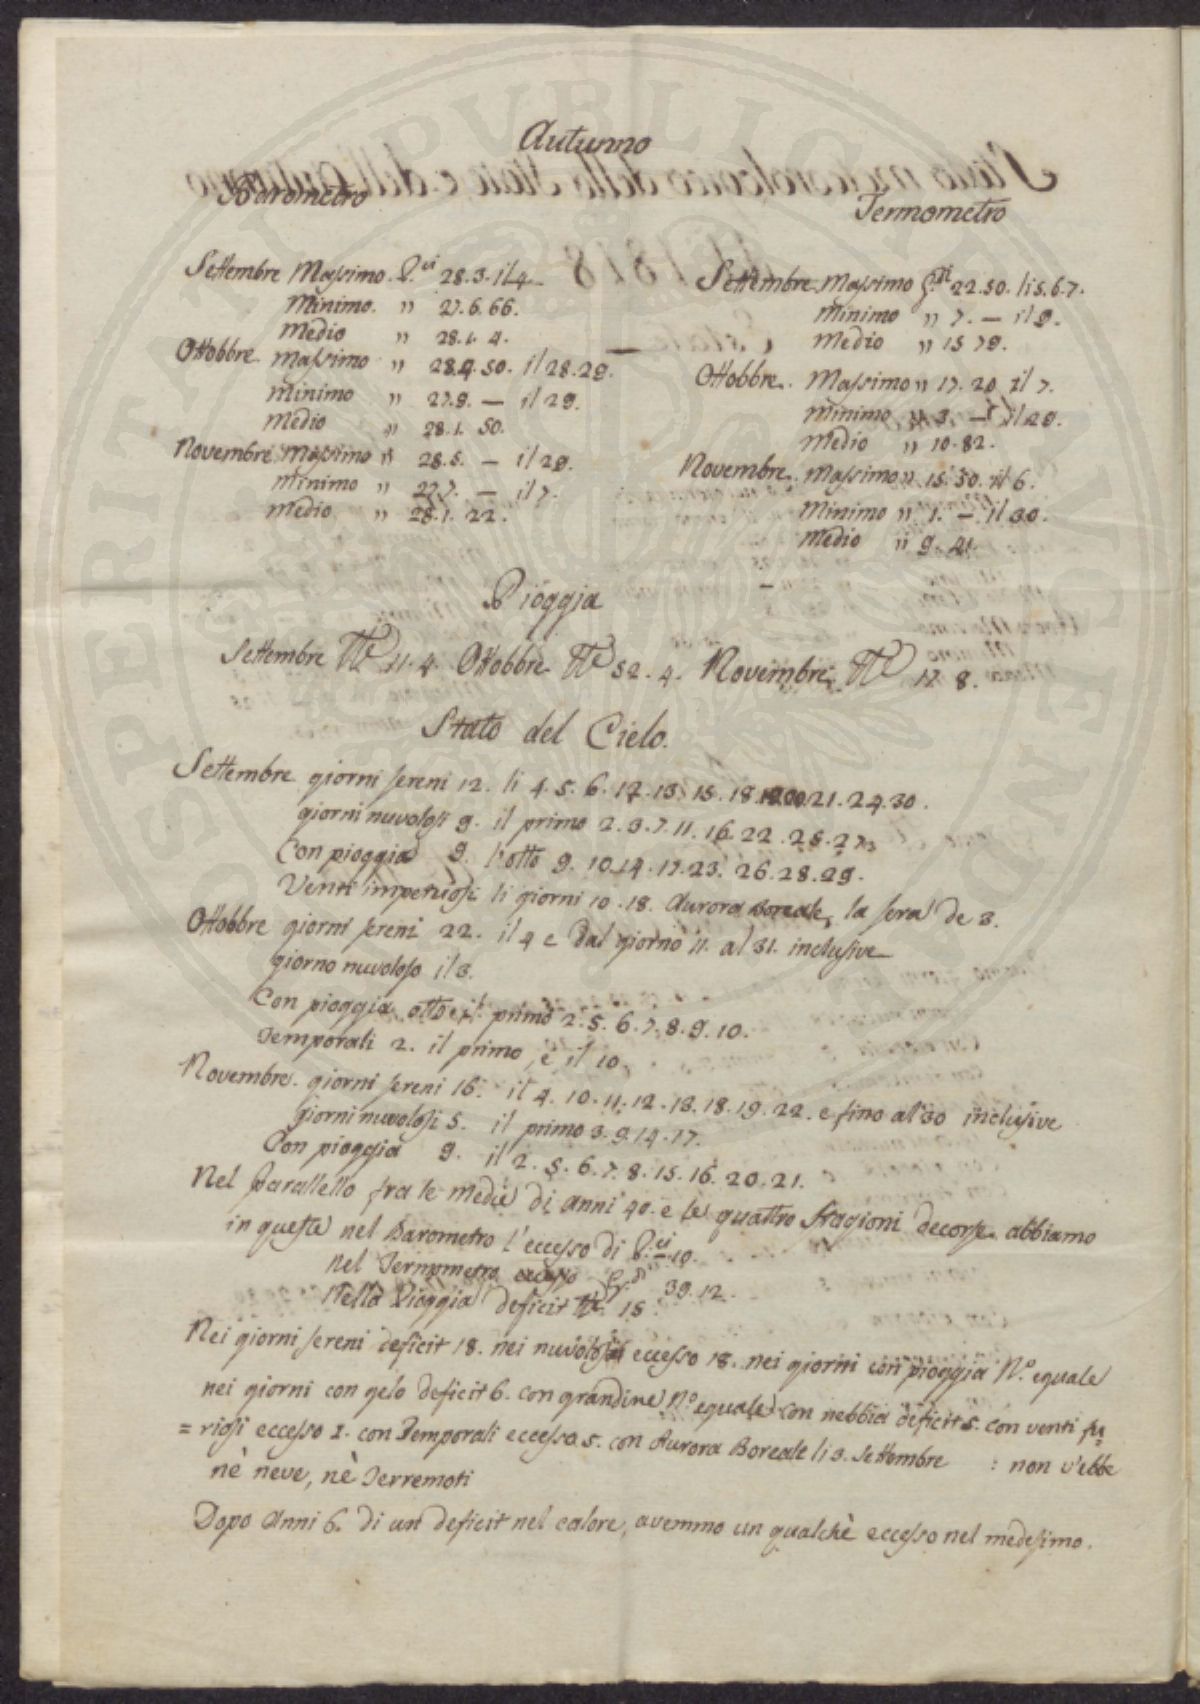 Autunno
Barometro
Termometro
Settembre Massimo. P.ci 28.3. il 4
Minimo. " 27.6.66.
Medio " 28.1. 4.
Ottobbre Massimo " 28.4.50. il 28.29.
Minimo " 27.9. — il 29.
Medio " 28.1. 50.
Novembre Massimo " 28.5. — il 29.
Minimo " 27.7. — il 7.
Medio " 28.1. 22.
Settembre. Massimo G.di 22.50. li 5.6.7.
Minimo " 7. — il 9.
Medio " 15 79.
Ottobbre. Massimo " 17. 20 il 7.
Minimo " 4 3. — il 29.
Medio " 10.82.
Novembre. Massimo " 15.50. il 6.
Minimo " 1. — il 30.
Medio " 9. 41.
Pioggia
Settembre 11.4. Ottobbre 52.4. Novembre 17.8.
Stato del Cielo.
Settembre giorni sereni 12. li 4.5.6.12.13.15.18. 21.24.30.
giorni nuvolosi 9. il primo 2.3.7.11.16.22.25.27
Con pioggia 9. l'otto 9.10.14.17.23.26.28.29.
Venti impetuosi li giorni 10.18. Aurora Boreale, la sera de 3.
Ottobbre giorni sereni 22. il 4 e dal giorno 11. al 31. inclusive
giorno nuvoloso il 3.
Con pioggia otto il primo 2.5.6.7.8.9.10.
Temporali 2. il primo, e il 10
Novembre. giorni sereni 16. il 4.10.11.12.13.18.19.22. e fino al 30 inclusive
giorni nuvolosi 5. il primo 3.9.14.17.
Con pioggia 9. il 2.5.6.7.8.15.16.20.21.
Nel Parallello fra le medie di anni 40. e le quattro Stagioni decorse abbiamo
in queste nel Barometro l'eccesso di P.ci — 10.
nel Termometro eccesso G.di 39.12.
Nella Pioggia deficit 15.
Nei giorni sereni deficit 18. nei nuvolosi eccesso 18. nei giorni con pioggia N.o equale
nei giorni con gelo deficit 6. con grandine N.o equale con nebbia deficit 5. con venti fu=
=riosi eccesso 2. con Temporali eccesso 5. con Aurora Boreale li 3. Settembre : non v'ebbe
nè neve, nè Terremoti
Dopo Anni 6. di un deficit nel calore, avemmo un qualchè eccesso nel medesimo.